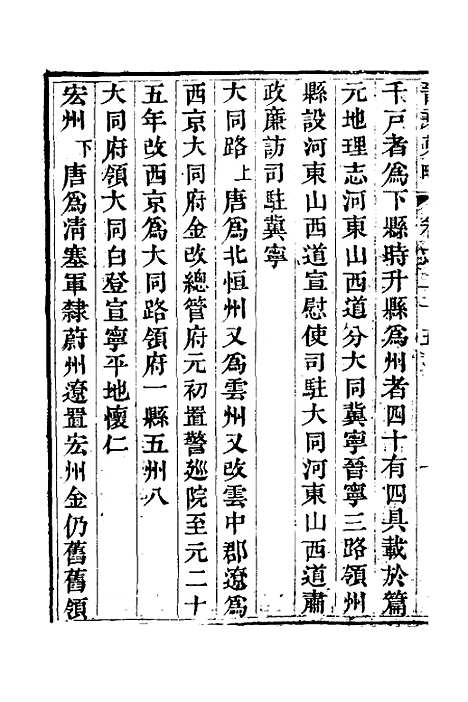 千戸者爲下縣時升縣爲州者四十有四具載於篇
元地理志河東山西道分大同冀寧晉寧三路領州
縣設河東山西道宣慰使司駐大同河東山西道肅
政廉訪司駐冀寧
大同路上唐爲北恒州又爲雲州又改雲中郡遼爲
西京大同府金改總管府元初置警廵院至元二十
五年改西京爲大同路領府一縣五州八
大同府領大同白登宣寧平地懷仁
宏州下唐爲淸塞軍隸蔚州遼置宏州金仍舊舊領